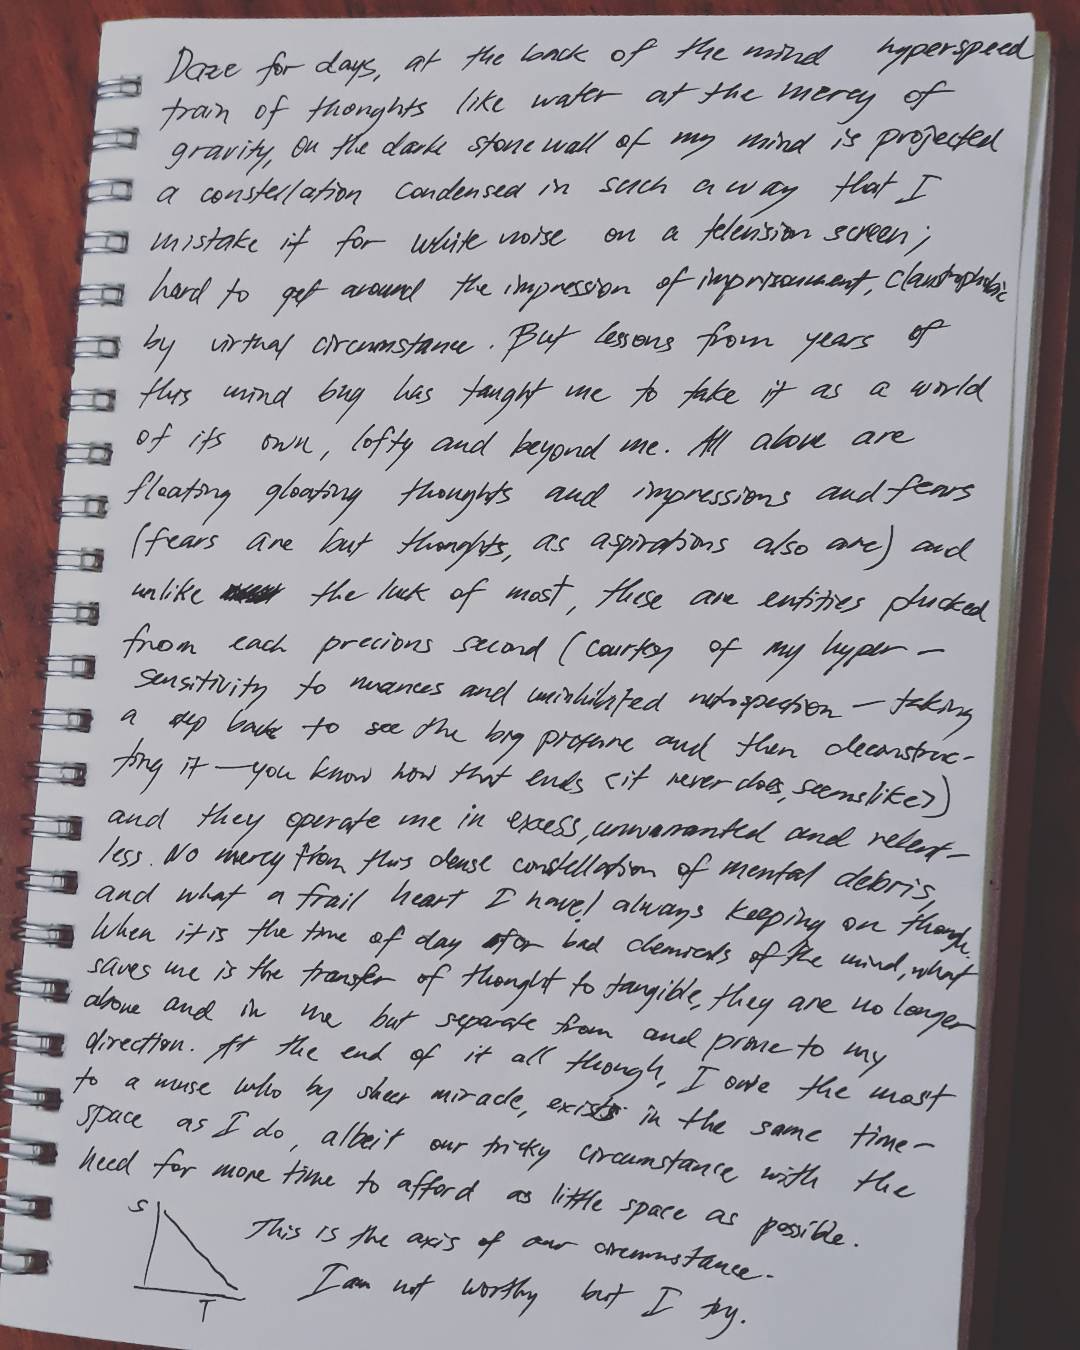 Daze for days, at the back of the mind hyperspeed
train of thoughts like water at the mercy of
gravity, on the dark stone wall of my mind is projected
a constellation condensed in such a way that I
mistake it for white noise on a television screen;
hard to get around the impression of imprisonment, claustrophobic
by virtual circumstance. But lessons from years of
this mind bug has taught me to take it as a world
of its own, lofty and beyond me. All above are
floating gloating thoughts and impressions and fears
(fears are but thoughts, as aspirations also are) and
unlike the luck of most, these are entities plucked
from each precious second (courtesy of my hyper-
sensitivity to nuances and uninhibited retrospection — taking
a step back to see the big picture and then deconstruc-
ting it — you know how that ends <it never does, seems like>)
and they operate me in excess, unwarranted and relent-
less. No mercy from this dense constellation of mental debris,
and what a frail heart I have! always keeping on though.
When it is the time of day for bad chemicals of the mind, what
saves me is the transfer of thought to tangible, they are no longer
above and in me but separate from and prone to my
direction. At the end of it all though, I owe the most
to a muse who by sheer miracle, exists in the same time-
space as I do, albeit our tricky circumstance with the
need for more time to afford as little space as possible.
S
This is the axis of our circumstance.
T
I am not worthy but I try.